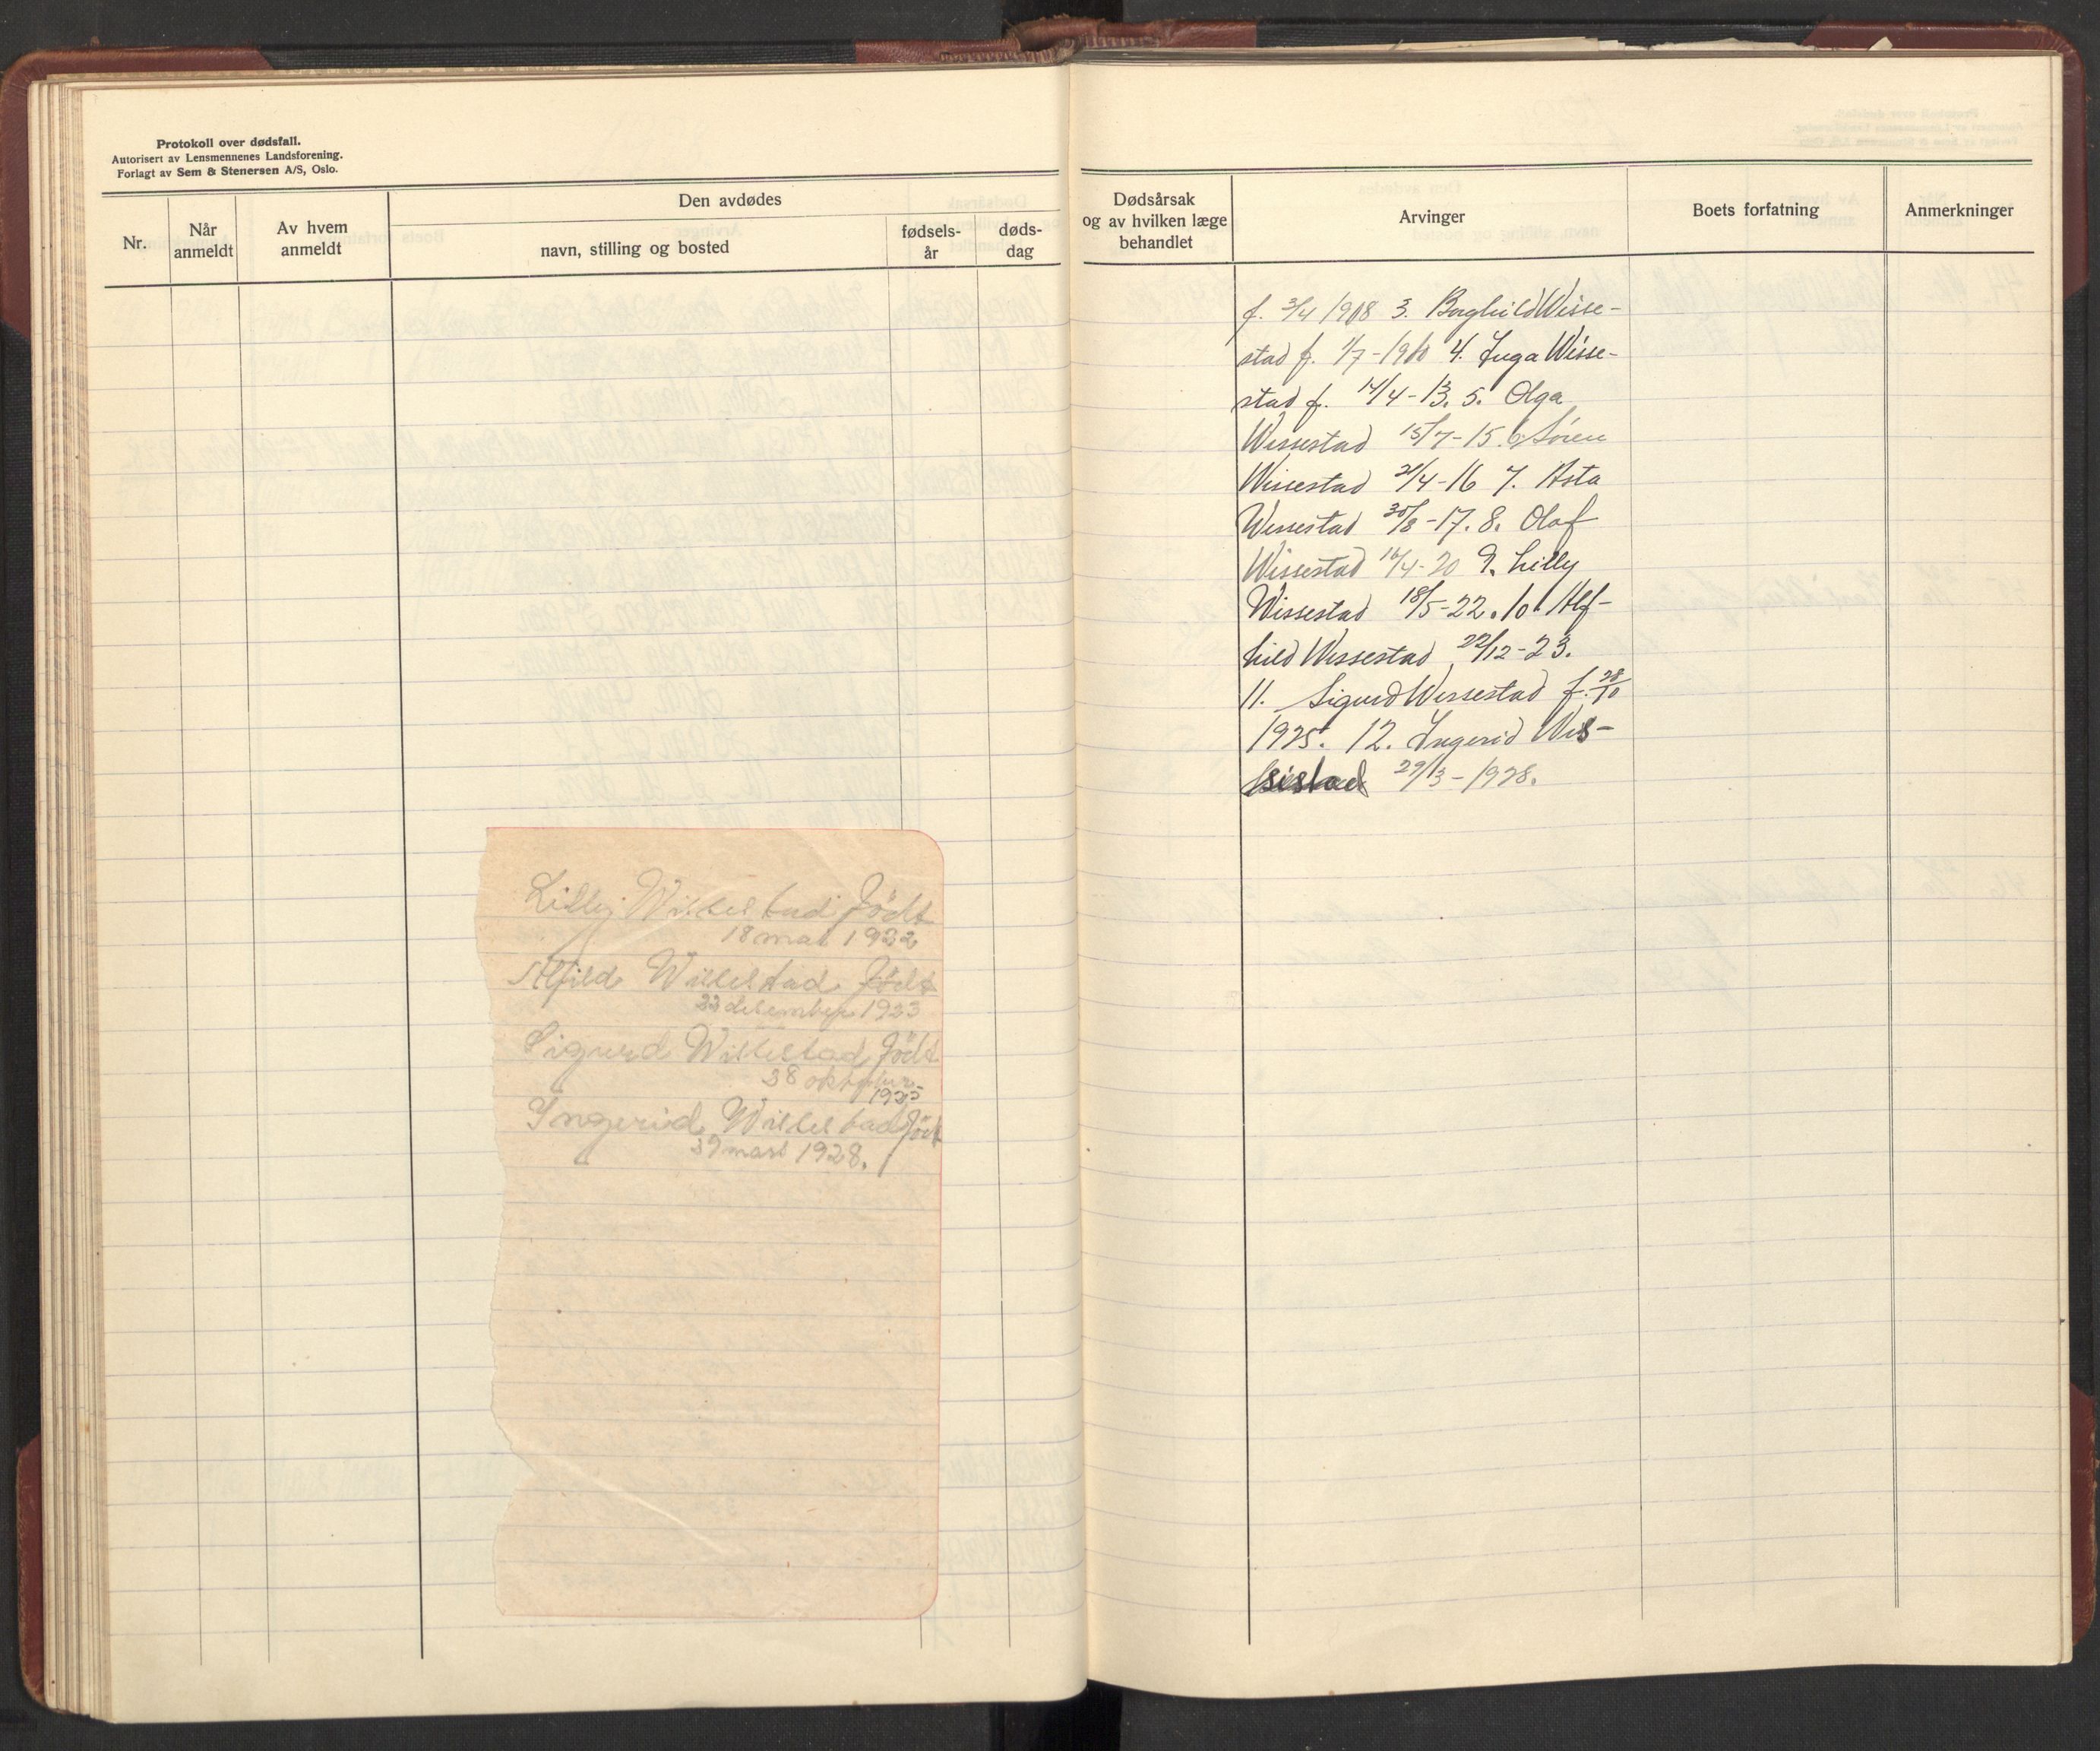 Protokoll over dødsfall.
Autorisert av Lensmennenes Landsforening.
Forlagt av Sem & Stenersen A/S, Oslo.
Nr.
Når anmeldt
Av hvem anmeldt
Den avdødes
navn, stilling og bosted
fødsels-år
døds-dag
Lilly Wissestad født
18 mai 1922
Alfild Wissestad født
22 desember 1923
Sigurd Wissestad født
28 oktober
1925
Ingerid Wissestad født
29 mars 1928.
Dødsårsak
og av hvilken læge
behandlet
Arvinger
Boets forfatning
Anmerkninger
f. 3/4 1908 3. Borghild Wisse-
stad f. 1/7-1910 4. Inga Wisse-
stad f. 14/4-13. 5. Olga
Wissestad 15/7-15. 6. Søren
Wissestad 21/4-16 7. Asta
Wissestad 30/8-17. 8. Olaf
Wissestad 16/4-20 9. Lilly
Wissestad 18/5-22. 10. Alf-
hild Wissestad 22/12-23.
11. Sigurd Wissestad f. 28/10
1925. 12. Ingerid Wis-
sestad 29/3-1928.